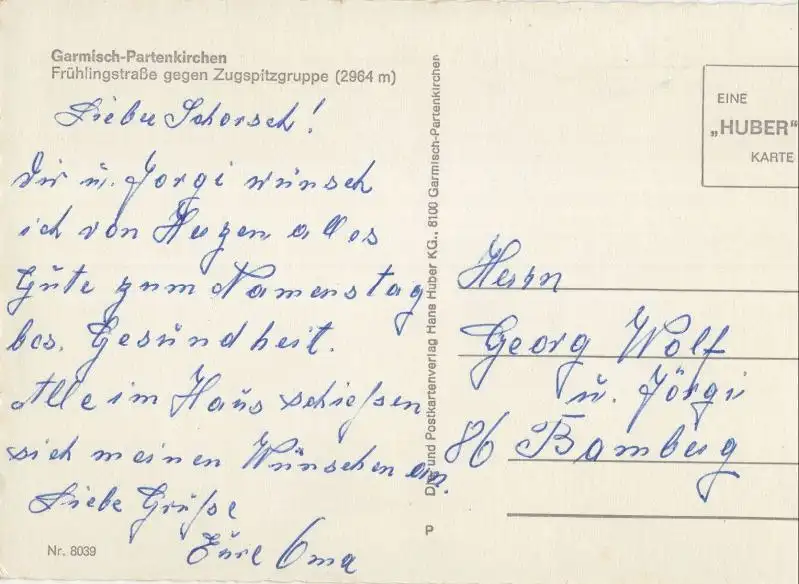 Garmisch-Partenkirchen
Frühlingstraße gegen Zugspitzgruppe (2964 m)
Lieber Schorsch!
Dir u. Jörgi wünsch
ich von Herzen alles
Gute zum Namenstag
bes. Gesundheit.
Alle im Haus schießen
sich meinen Wünschen an.
Liebe Grüße
Eure Oma
Nr. 8039
Druck und Postkartenverlag Hans Huber KG., 8100 Garmisch-Partenkirchen
P
EINE
„HUBER"
KARTE
Herrn
Georg Wolf
u. Jörgi
86 Bamberg